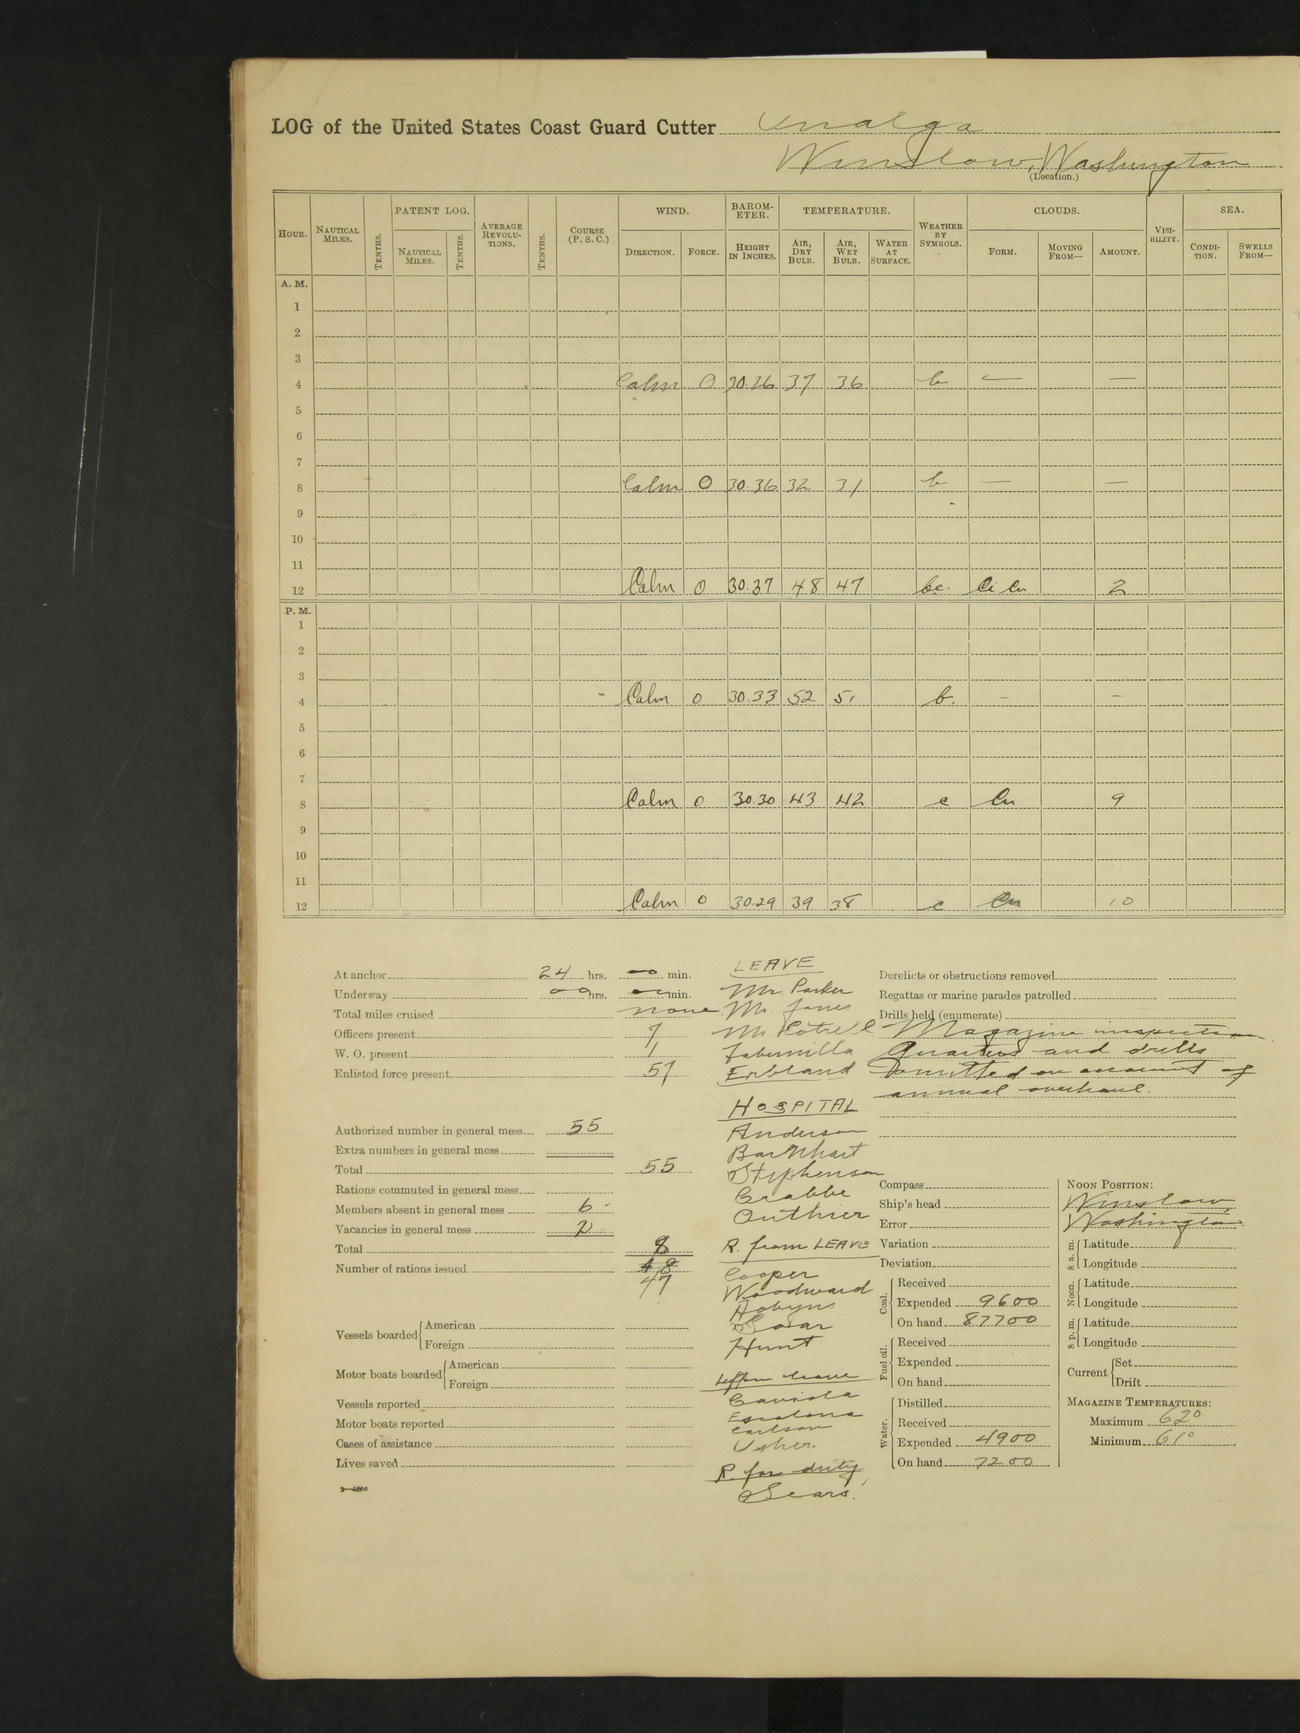 LOG of the United States Coast Guard Cutter Unalga
Winslow, Washington
(Location.)
HOUR. NAUTICAL MILES. TENTHS. PATENT LOG. NAUTICAL MILES. TENTHS. AVERAGE REVOLUTIONS. TENTHS. COURSE (P. S. C.) WIND. DIRECTION. FORCE. BAROMETER. HEIGHT IN INCHES. TEMPERATURE. AIR, DRY BULB. AIR, WET BULB. WATER AT SURFACE. WEATHER BY SYMBOLS. CLOUDS. FORM. MOVING FROM— AMOUNT. VISIBILITY. SEA. CONDITION. SWELLS FROM—
A. M.
1
2
3
4 Calm 0 30.26 37 36 b — —
5
6
7
8 Calm 0 30.36 32 31 b — —
9
10
11
12 Calm 0 30.37 48 47 bc. Ci Cu 2
P. M.
1
2
3
4 Calm 0 30.33 52 51 b. — —
5
6
7
8 Calm 0 30.30 43 42 c Cu 9
9
10
11
12 Calm 0 30.29 39 38 c Cu 10
At anchor 24 hrs. — min.
Underway — hrs. — min.
Total miles cruised none
Officers present 7
W. O. present 1
Enlisted force present 57
Authorized number in general mess 55
Extra numbers in general mess
Total 55
Rations commuted in general mess
Members absent in general mess 6
Vacancies in general mess 2
Total 8
Number of rations issued 48
47
Vessels boarded American
Foreign
Motor boats boarded American
Foreign
Vessels reported
Motor boats reported
Cases of assistance
Lives saved
LEAVE
Mr. Parker
Mr. Jones
Mr. Cotrell
Erbland
HOSPITAL
Anderson
Barnhart
Stephenson
Crabbe
Outhier
R. from LEAVE
Cooper
Woodward
Robyns
Hunt
Left on leave
Escalona
Carlson
Usher.
R. for duty,
Sears.
Derelicts or obstructions removed
Regattas or marine parades patrolled
Drills held (enumerate)
Magazine inspection
Quarters and drills
omitted on account of
annual overhaul.
Compass
Ship's head
Error
Variation
Deviation
Coal. Received
Expended 9600
On hand 87700
Fuel oil. Received
Expended
On hand
Water. Distilled
Received
Expended 4900
On hand 7200
NOON POSITION:
Winslow,
Washington.
8 a. m. Latitude
Longitude
Noon. Latitude
Longitude
8 p. m. Latitude
Longitude
Current Set
Drift
MAGAZINE TEMPERATURES:
Maximum 62°
Minimum 61°